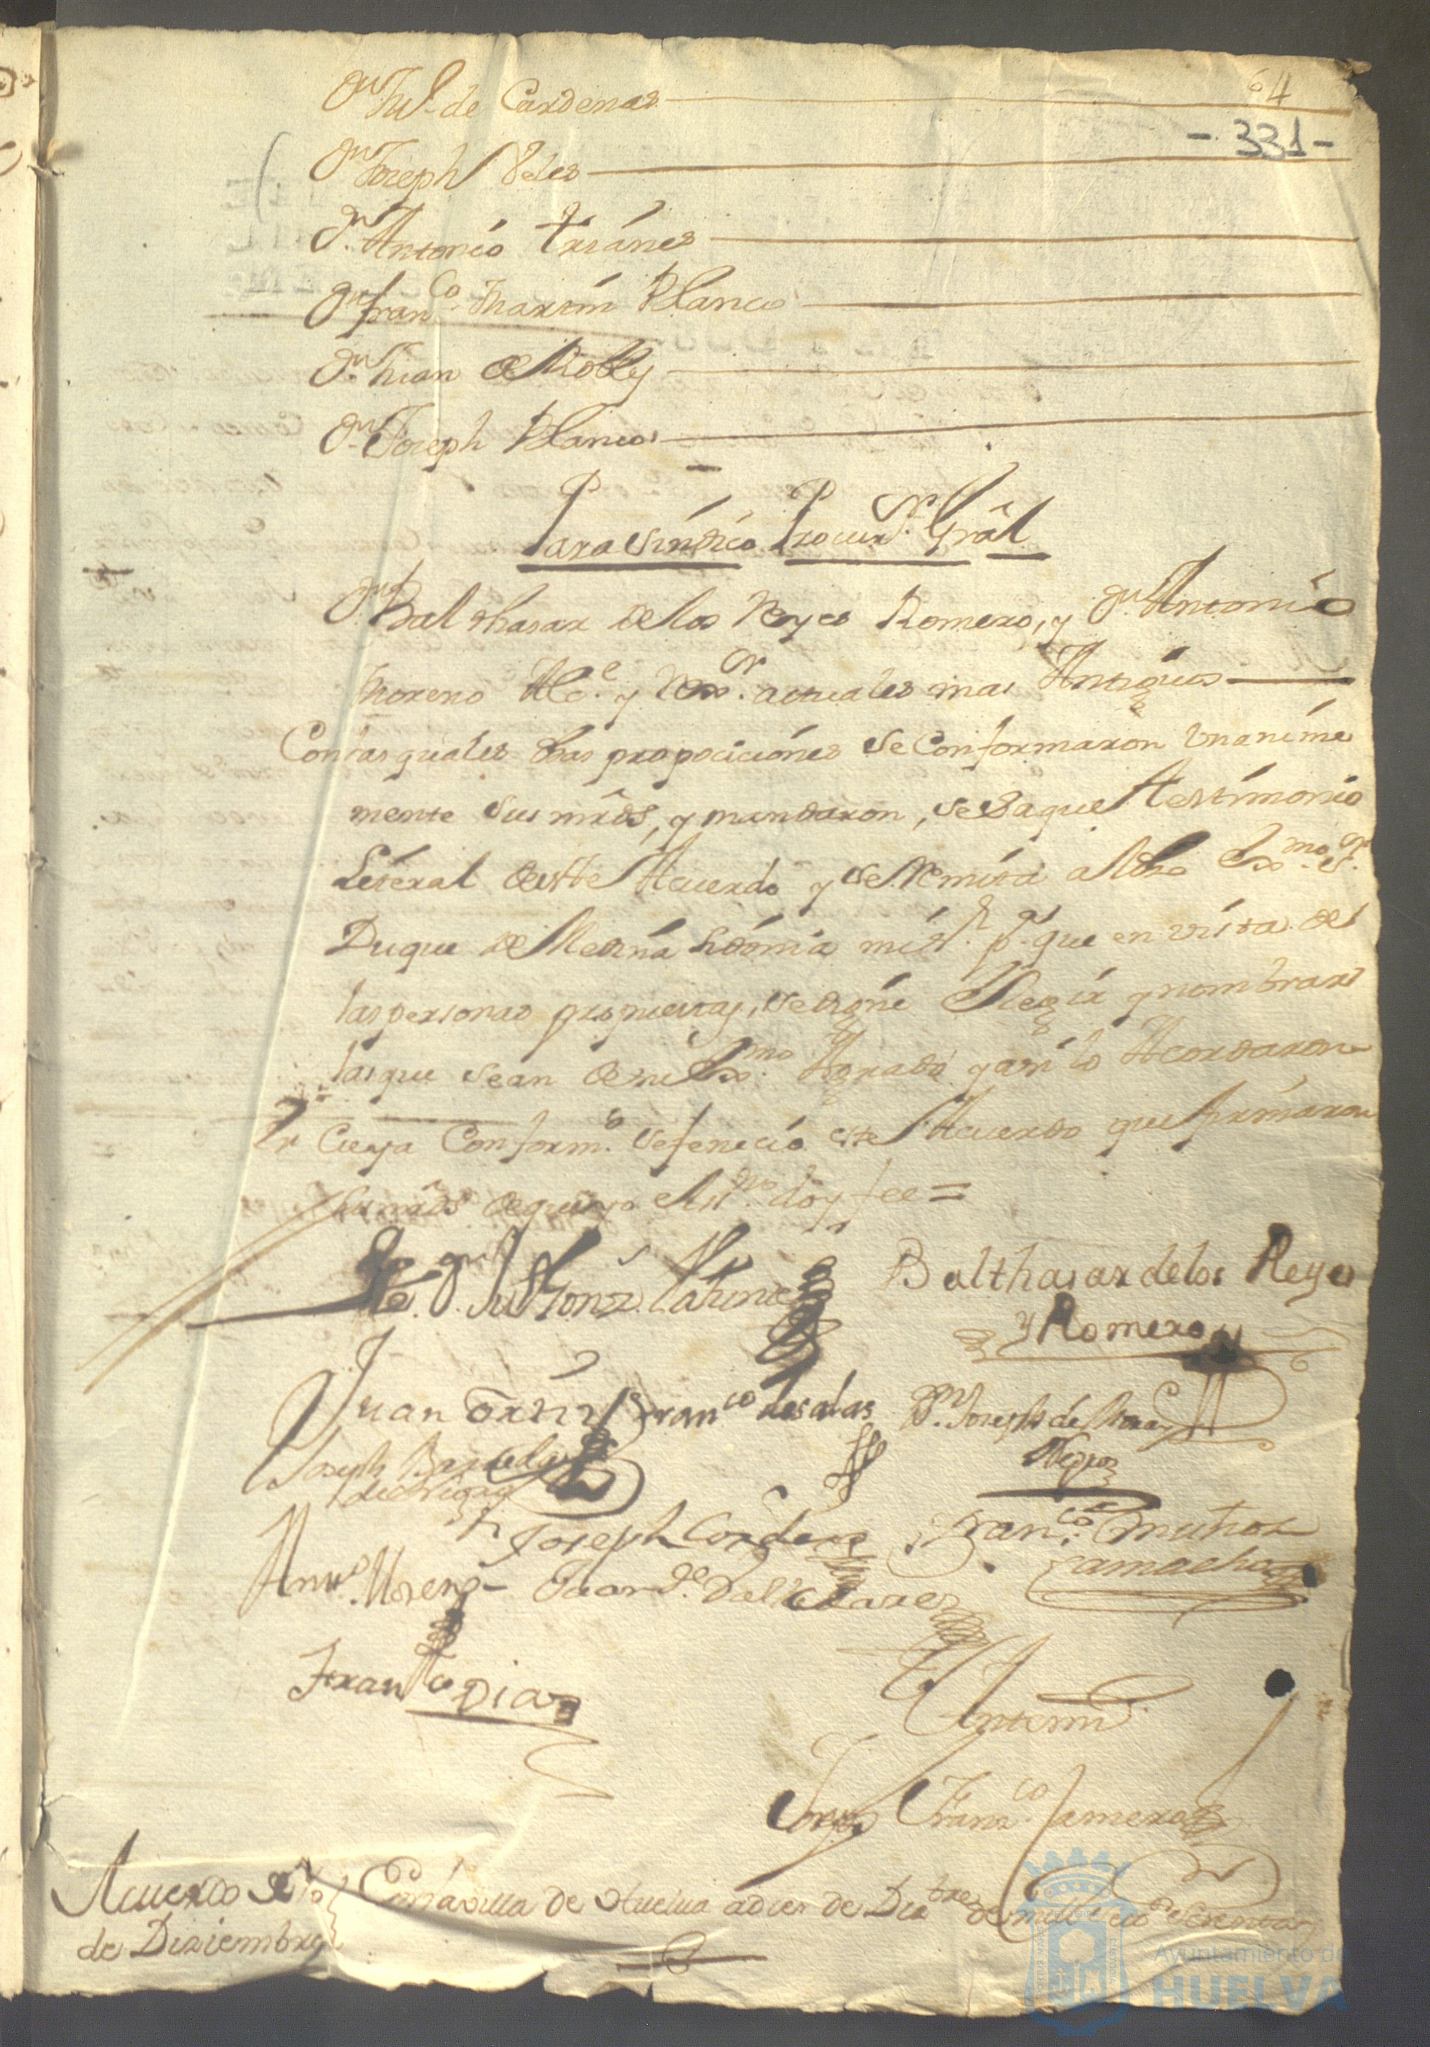 64
- 331 -
Dn Ju.o de Cardenas
Dn Joseph Veles
Dn Antonio Trianes
Dn Fran.co Martin Blanco
Dn Juan de Robles
Dn Joseph Blanco
Para Sindico Procur.or Gral
Dn Balthasar de los Reyes Romero, y Dn Antonio
Moreno Alc.e y Rex.or actuales mas Antiguos
Con las quales dhas proposiciones se Conformaron Vnanime
mente sus mrds, y mandaron, se saque Testimonio
Literal de este Acuerdo y se Remita a dho Exmo. Sr.
Duque de Medina Sidonia mi Sr. p.a que en vista de
las personas propuestas, se digne Elegir y nombrar
las que sean de su Ex.mo Agrado y asi lo Acordaron
En Cuya Conform.d se fenecio este Acuerdo que firmaron
sus mrds de que yo el Ss.no doy fee =
Balthasar de los Reyes
y Romero
Juan Ortiz Fran.co de salas Dn Joseph de
Joseph
Joseph Cordero Fran.co Muñoz
Camacho
Ant.o Moreno
Fran.co Diaz
Ante mi
Fran.co Romero
Acuerdo
de Diziembre
En la Villa de Huelva a dies de Diz.bre de mill
Ayuntamiento de
HUELVA